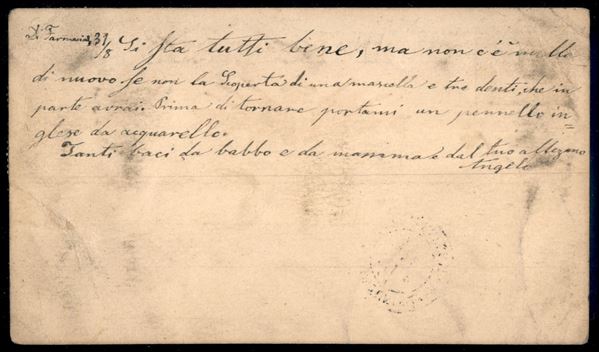 31/8 Si sta tutti bene, ma non c'è nulla
di nuovo se non la scoperta di una mascella e tre denti, che in
parte avrai. Prima di tornare portami un pennello in=
glese da acquarello.
Tanti baci da babbo e da mamma e dal tuo
Angelo